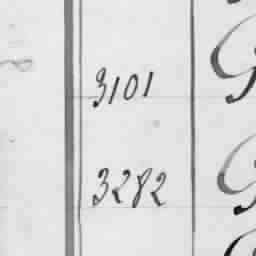 3101
3282